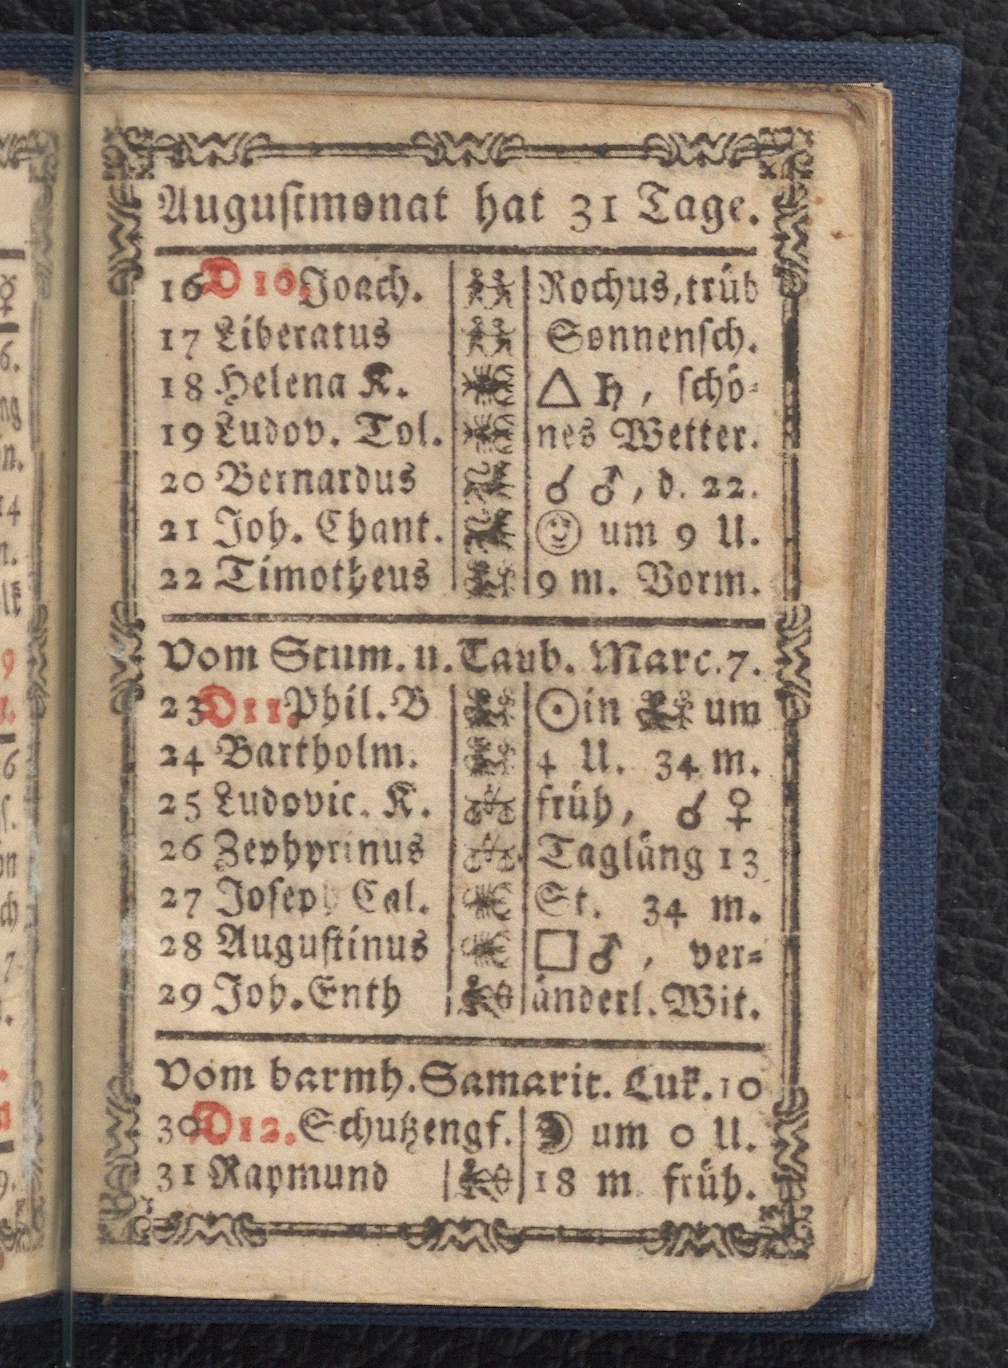 Augustmonat hat 31 Tage.
16 D 10. Joach. Rochus, trüb
17 Liberatus Sonnensch.
18 Helena K. △ ♄, schö-
19 Ludov. Tol. nes Wetter.
20 Bernardus ☌ ♂, d. 22.
21 Joh. Chant. um 9 U.
22 Timotheus 9 m. Vorm.
Vom Stum. u. Taub. Marc. 7.
23 D 11. Phil. B ☉ in um
24 Bartholm. 4 U. 34 m.
25 Ludovic. K. früh, ☌ ♀
26 Zephyrinus Tagläng 13
27 Joseph Cal. St. 34 m.
28 Augustinus □ ♂, ver-
29 Joh. Enth änderl. Wit.
Vom barmh. Samarit. Luk. 10
30 D 12. Schutzengf. um 0 U.
31 Raymund 18 m früh.
9
6.
ng
n.
14
n.
9
1.
6
ch
7
9.